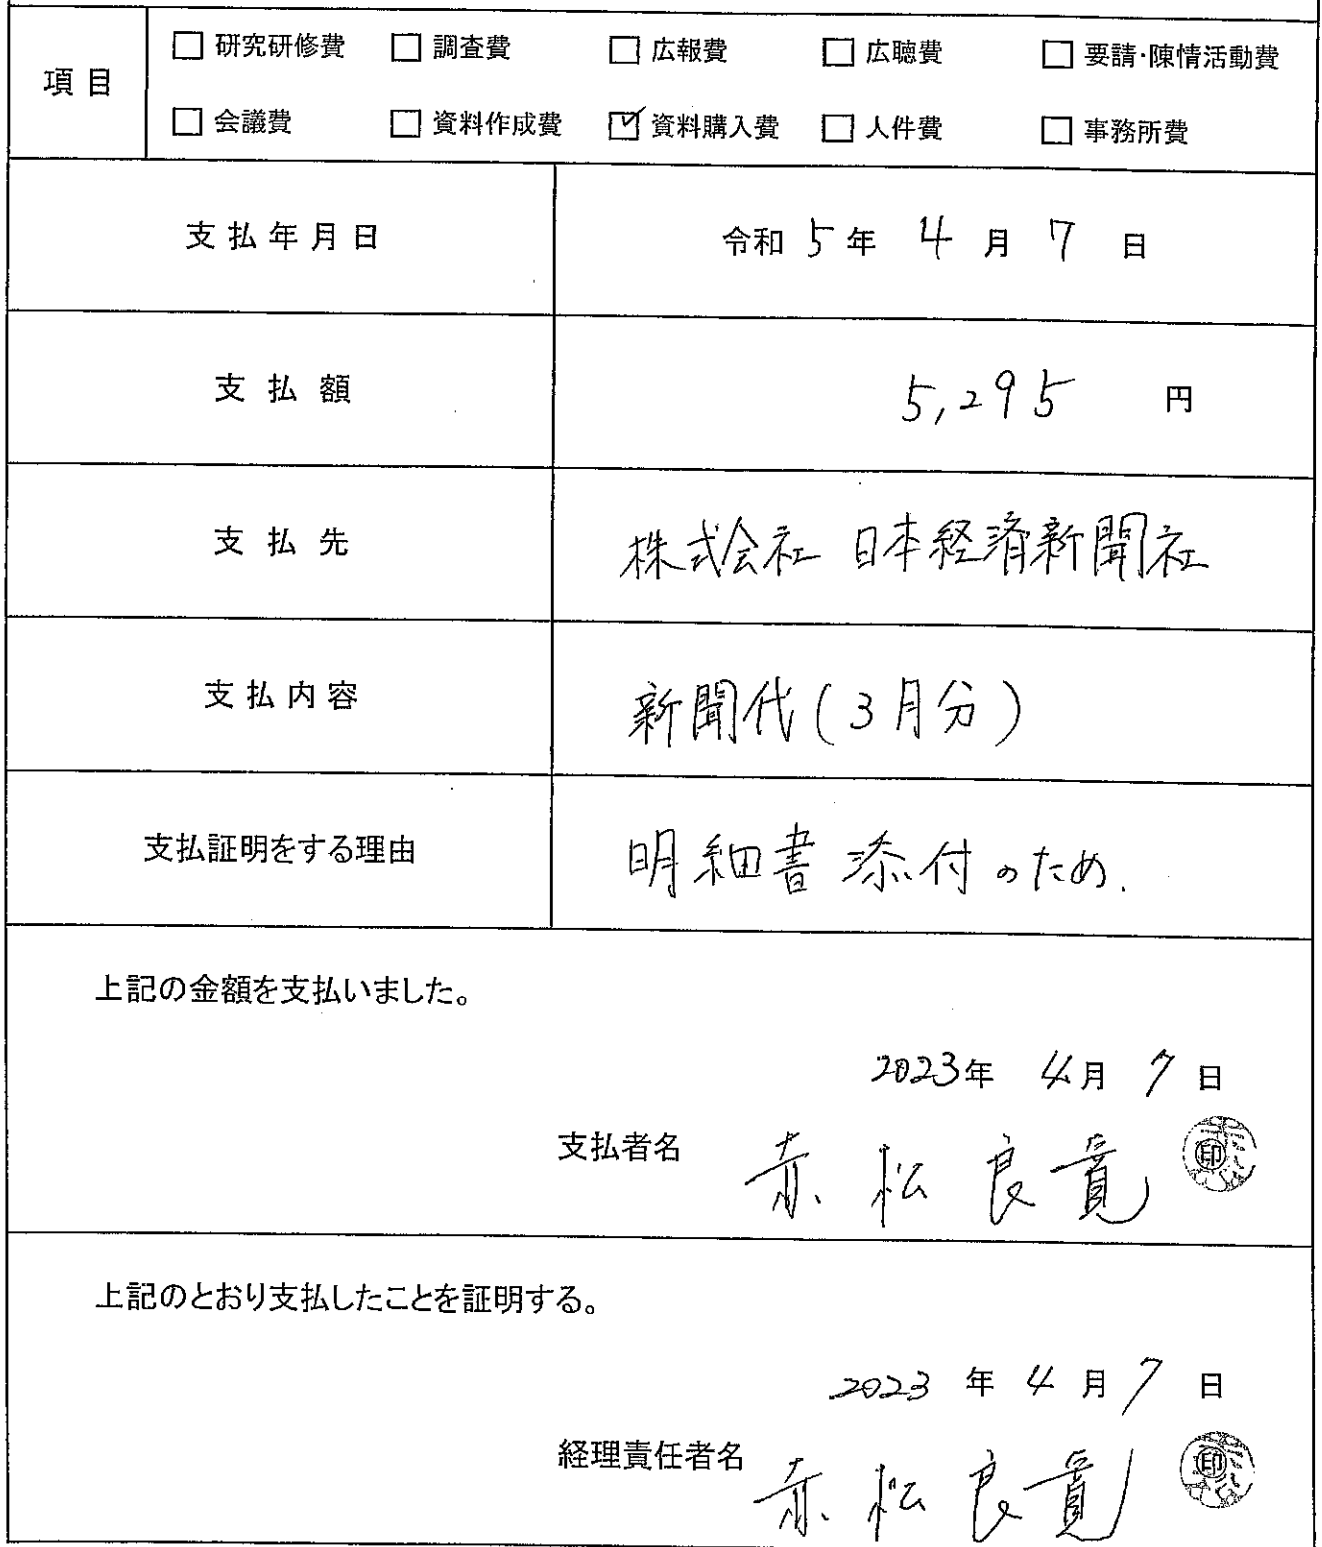 □ 研究研修費 □ 調査費 □ 広報費 □ 広聴費 □ 要請・陳情活動費
項目
□ 会議費 □ 資料作成費 ☑ 資料購入費 □ 人件費 □ 事務所費
支払年月日 令和 5 年 4 月 7 日
支払額 5,295 円
支払先 株式会社 日本経済新聞社
支払内容 新聞代(3月分)
支払証明をする理由 明細書添付のため.
上記の金額を支払いました。
2023年 4月 7日
支払者名 赤松良寛 印
上記のとおり支払したことを証明する。
2023 年 4 月 7 日
経理責任者名 赤松良寛 印